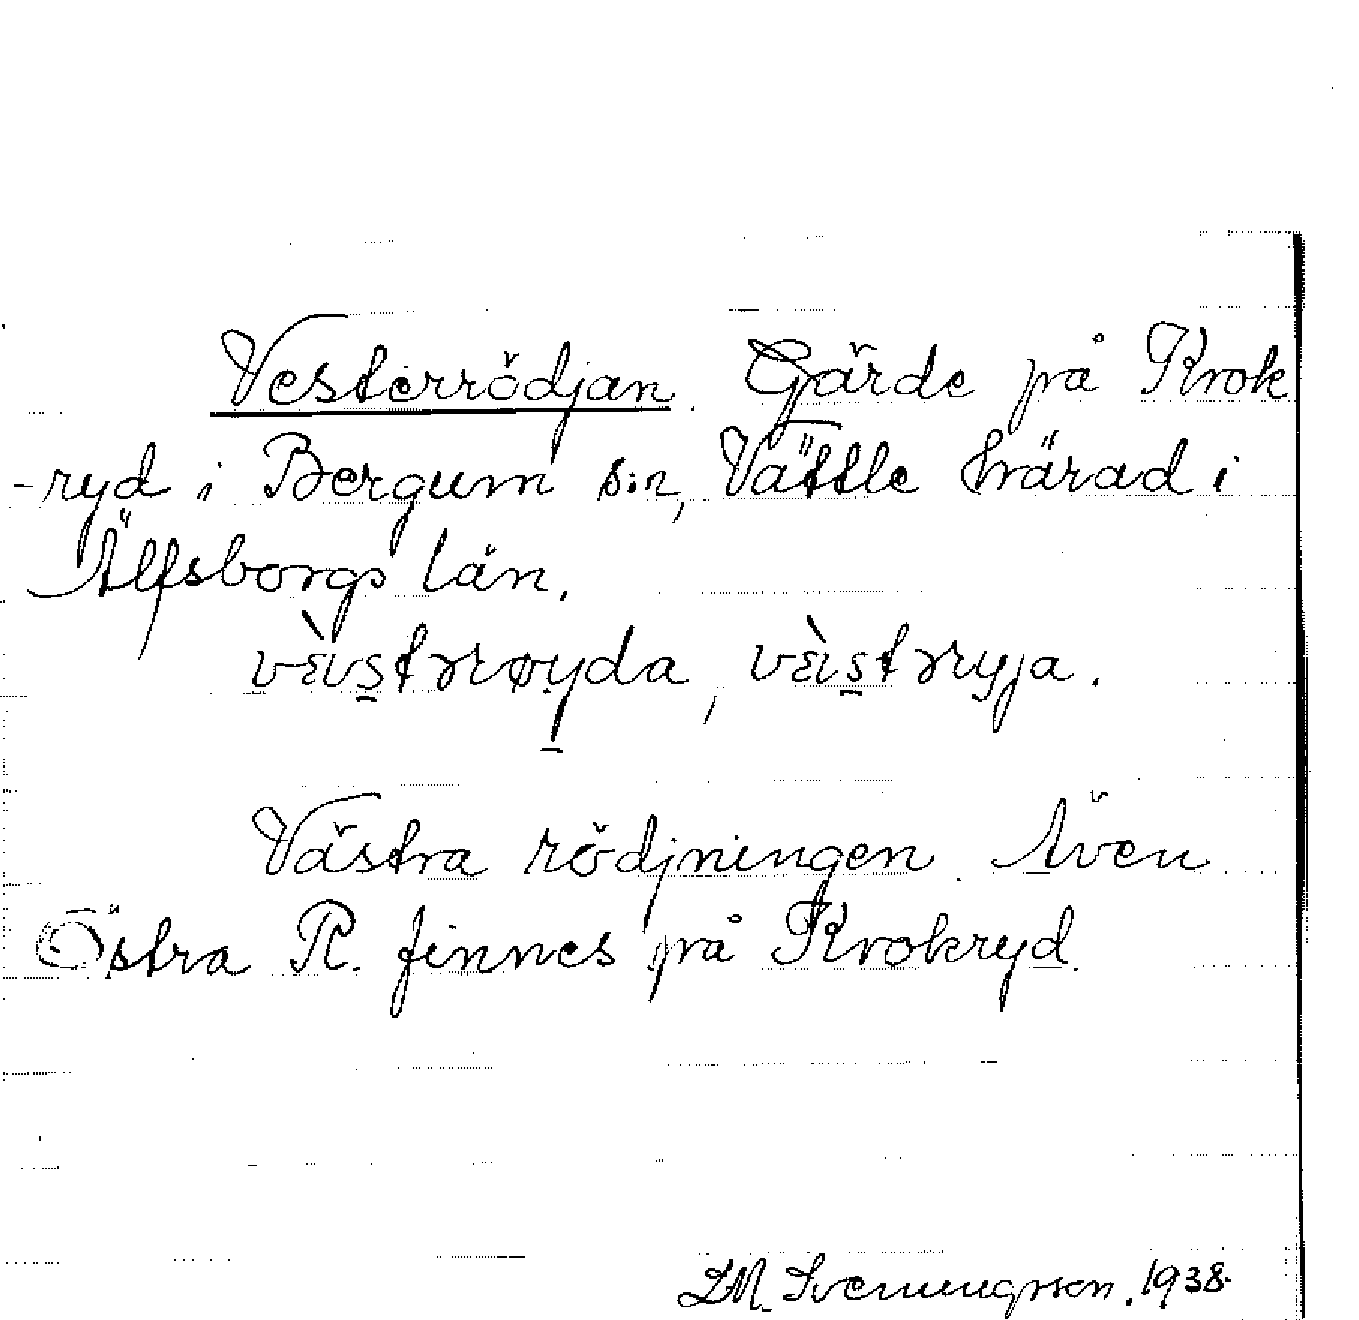 Vesterrödjan. Gärde på Krok
-ryd i Bergum s:n, Vättle härad i
Älfsborgs län.
Västra rödjningen. Även
Östra R. finnes på Krokryd.
LM Svenungsson. 1938.